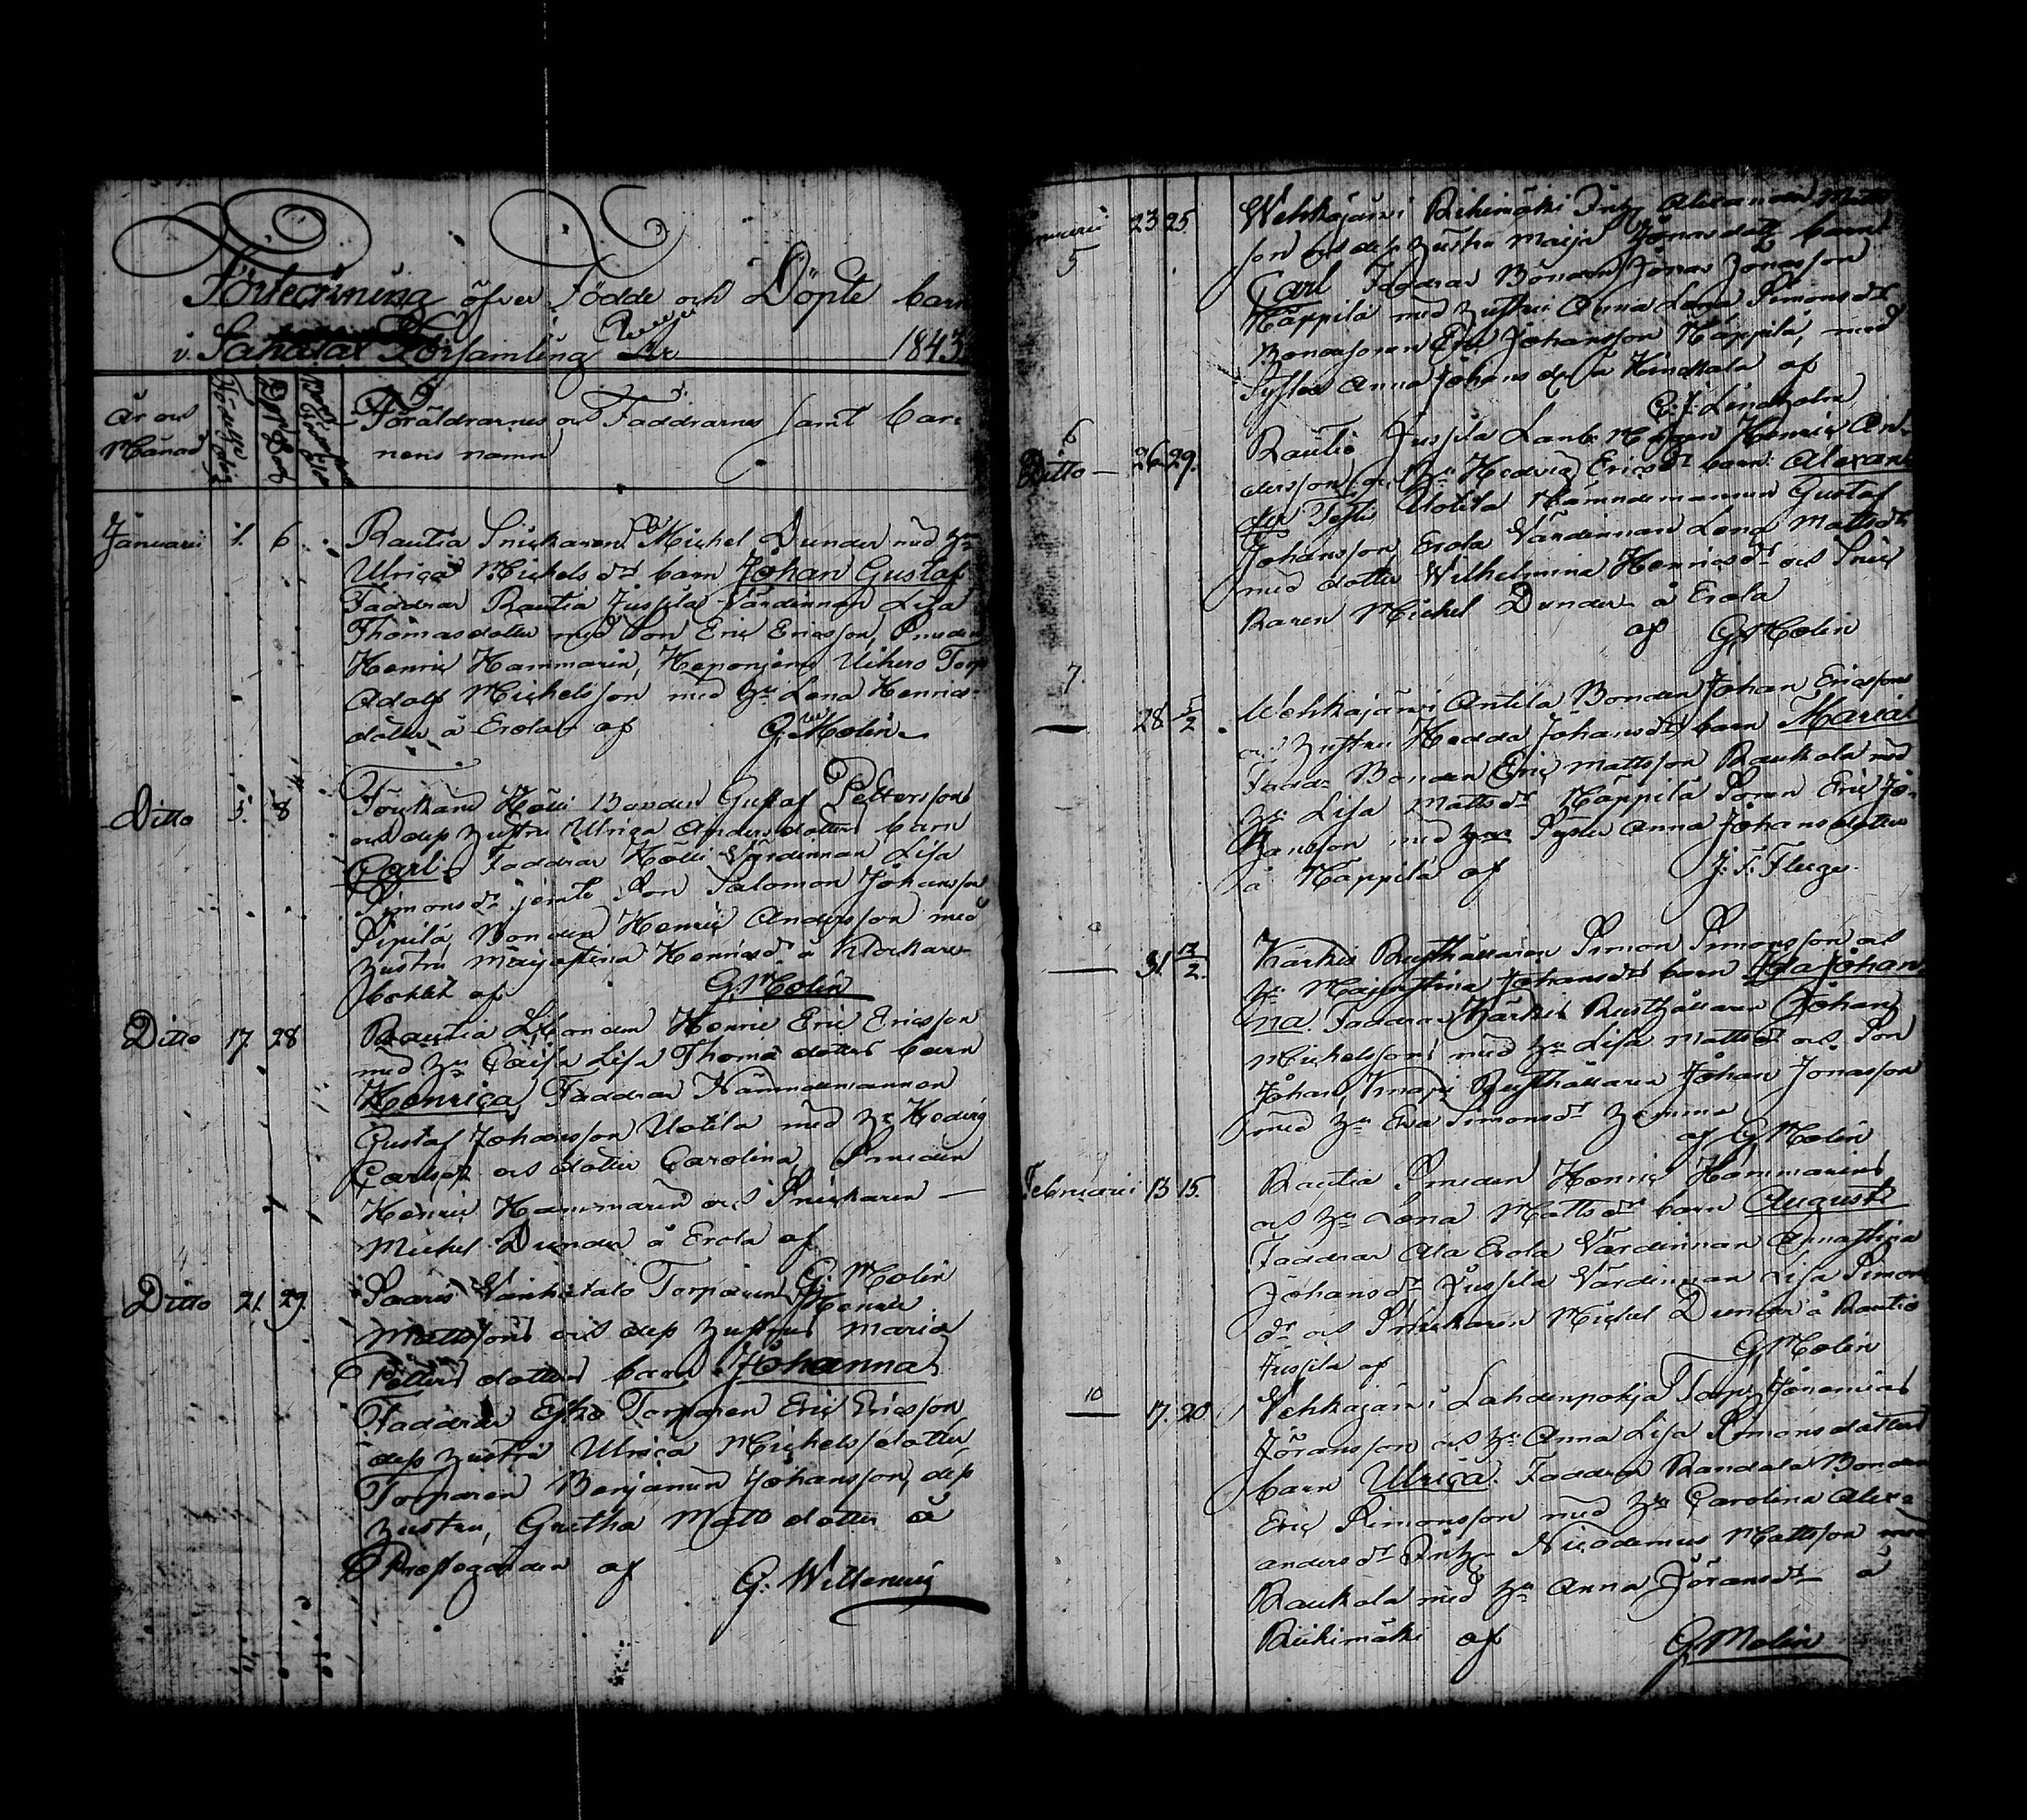 Förteckning öfver Födde och Döpte barn
i Församling 1843
År och
Månad
Födelse dag
Döpelse dag
Föräldrarnes och Faddrarnes samt bar-
nens namn
Januarii 1. 6. Rautia Snickaren Michel Dunder med h:u
Ulrica Michels dr barn Johan Gustaf
Faddrar Rautia Jussila Värdinnan Lisa
Thomasdotter med Son Eric Ericsson, Smeden
Henric Hammarin, Torp
Adolf Michelsson med h:u Lena Henrics-
dotter å Erola af G. Molin
Ditto 5. 8. Bonden Gustaf Pettersson
och dess hustru Ulrica Andersdotters barn
Carl. Faddrar Värdinnan Lisa
Simonsdr jemte Son Salomon Johansson
Sipilä, Bonden Henric Andersson med
hustru Majastina Henricsdr å Klockare-
bohlet af G. Molin
Ditto 17. 28 Rautia Henric Eric Ericsson
med h:u Caisa Lisa Thomædotters barn
Henrica, Faddrar Nämndemannen
Gustaf Johansson Uotila med h:u Hedvig
Carlsdr och dotter Carolina, Smeden
Henric Hammarin och Snickaren —
Michel Dunder å Erola af
G. Molin
Ditto 21. 29. Saaris Vanhatalo Torparen Henric
Mattssons och dess hustrus Maria
Petters dotters barn Johanna
Faddrar Torparen Eric Ericsson
dess hustru Ulrica Michelsdotter,
Torparen Benjamin Johansson, dess
hustru, Gretha Matts dotter å
Prestegården af G. Willenius
5
23 25. Wehkajärvi Riihimäki Alexander Matts
son och dess hustru Maija Jönasdotters barn
Carl Faddrar Bonden Jonas Jonasson
Käppilä med hustru Anna Lena Simonsdr
Bondesonen Eric Johansson Käppilä, med
Syster Anna Johansdr å af
G. J. Lindholm
6
Ditto — 26 29. Rautio Jussila Henric An-
dersson och h:u Hedvig Ericsdr barn Alexan-
der Uotila Nämndemannen Gustaf
Johansson Erola Värdinnan Lena Mattsdr
med dotter Wilhelmina Henricsdr och Snic
karen Michel Dunder å Erola
af G. Molin
7.
— 28 5/2. Wehkajärvi Antila Bonden Johan Ericssons
och hustru Hedda Johansdr barn Maria
Bonden Eric Mattsson Raukola med
h:u Lisa Mattsdr Käppilä Sonen Eric Jo-
hansson med Syster Anna Johansdotter
å Käppilä af J. F. Fluge
— 31. 12/2. Kärkis Rusthållaren Simon Simonsson och
h:u Majastina Johansdrs barn Ida Johan
na. Faddrar Kärkis Rusthållaren Johan
Michelsson med h:u Lisa Mattsdr och Son
Johan, Rusthållaren Johan Jonasson
med h:u Eva Simonsdr
af G. Molin
Februarii 13 15. Rautia Smeden Henric Hammarins
och h:u Lena Mattsdr barn August
Faddrar Ala Erola Värdinnan Annastina
Johansdr Jussila Värdinnan Lisa Simons
dr och Snickaren Michel Dunder å Rautio
Jussila af G. Molin
10
— 17. 20 Vehkajärvi Lahdenpohja Torp: Jeremias
Jöransson och h:u Anna Lisa Simonsdotters
barn Ulrica. Faddrar Bonden
Eric Simonsson med h:u Carolina Alex-
andersdr Nicodemus Mattsson
Raukola med h:u Anna Jöransdr å
Riihimäki af G. Molin